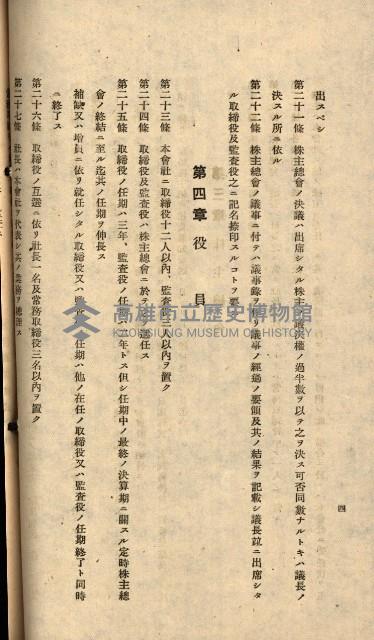 出スベシ
第二十一條　株主總會ノ決議ハ出席シタル株主ノ議決權ノ過半數ヲ以テ之ヲ決ス可否同數ナルトキハ議長ノ
決スル所ニ依ル
第二十二條　株主總會ノ議事ニ付テハ議事錄ヲ作リ議事ノ經過ノ要領及其ノ結果ヲ記載シ議長竝ニ出席シタ
ル取締役及監査役之ニ記名捺印スルコトヲ要ス
第四章　役員
第二十三條　本會社ニ取締役十二人以內、監査役 人以內ヲ置ク
第二十四條　取締役及監査役ハ株主總會ニ於テ 選任ス
第二十五條　取締役ノ任期ハ三年、監査役ノ任期ハ 年トス但シ任期中ノ最終ノ決算期ニ關スル定時株主總
會ノ終結ニ至ル迄其ノ任期ヲ伸長ス
補缺又ハ增員ニ依リ就任シタル取締役又ハ監査役ノ任期ハ他ノ在任ノ取締役又ハ監査役ノ任期終了ト同時
ニ終了ス
第二十六條　取締役ノ互選ニ依リ社長一名及常務取締役三名以內ヲ置ク
第二十七條　社長ハ本會社ヲ代表シ其ノ業務ヲ總理ス
四
高雄市立歷史博物館
KAOHSIUNG MUSEUM OF HISTORY